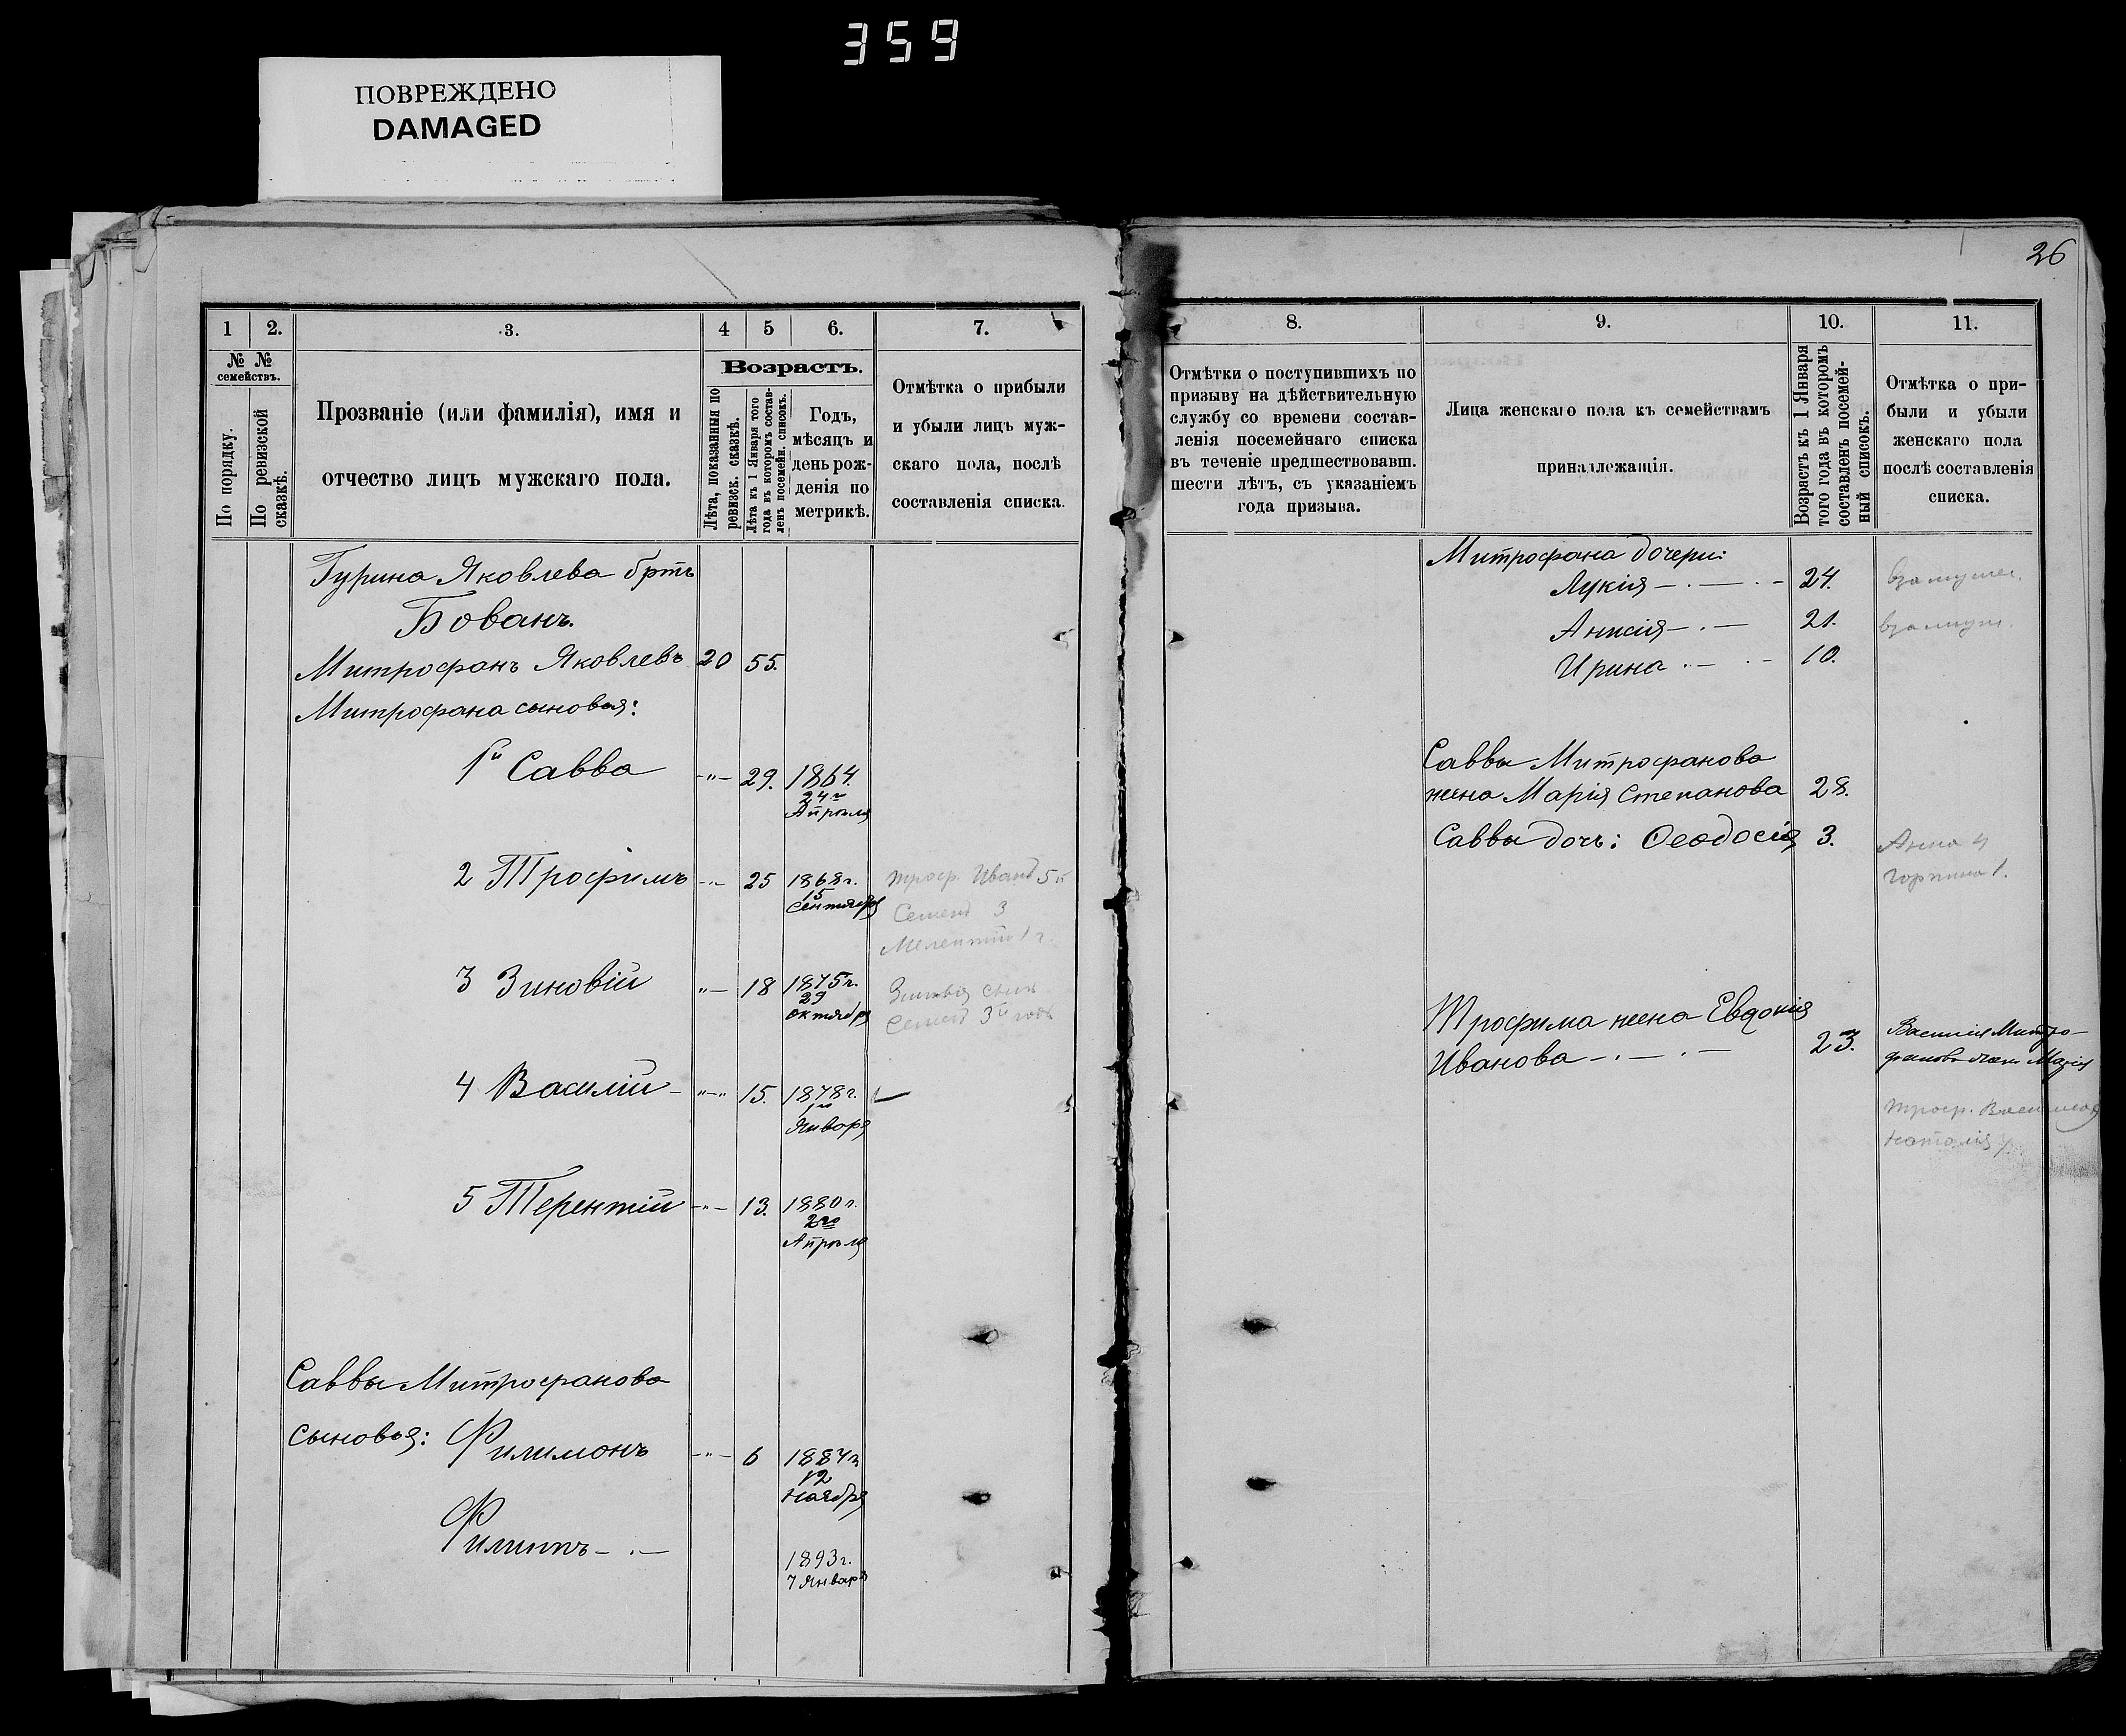 359
ПОВРЕЖДЕНО
DAMAGED
26
1
2.
3.
4
5
6.
7.
№ №
семействъ.
По порядку.
По ревизской
сказкѣ.
Прозваніе (или фамилія), имя и
отчество лицъ мужскаго пола.
Возрастъ.
Лѣта, показанныя по
ревизск. сказкѣ.
Лѣта къ 1 Января того
года въ которомъ состав-
ленъ посемейн. списокъ.
Годъ,
мѣсяцъ и
день рож-
денія по
метрикѣ.
Отмѣтка о прибыли
и убыли лицъ муж-
скаго пола, послѣ
составленія списка.
Гурина Яковлева братъ
Бованъ.
Митрофанъ Яковлевъ 20 55.
Митрофана сыновья:
1й Савва -"- 29. 1864.
24го
Апрѣля
2 Трофимъ -"- 25 1868г.
15
Сентября
Троф. Иванъ 5
Семенъ 3
Мелентій 1 г.
3 Зиновій "- 18 1875г.
29
Октября
Зиновія сынъ
Семенъ 3й годъ
4 Василій - "-" 15. 1878г.
1го
Января
5 Терентій -"- 13. 1880г.
2го
Апрѣля
Саввы Митрофанова
сыновья: Филимонъ -"- 6 1887г
12
Ноября
Филиппъ - . -
1893г.
7 Января
8.
9.
10.
11.
Отмѣтки о поступившихъ по
призыву на дѣйствительную
службу со времени состав-
ленія посемейнаго списка
въ теченіе предшествовавш.
шести лѣтъ, съ указаніемъ
года призыва.
Лица женскаго пола къ семействамъ
принадлежащія.
Возрастъ къ 1 Января
того года въ которомъ
составленъ посемей-
ный списокъ.
Отмѣтка о при-
были и убыли
женскаго пола
послѣ составленія
списка.
Митрофана дочери:
Лукія - . - . - 24.
Анисія - . - 21.
Ирина . - . - 10.
Саввы Митрофанова
жена Марія Степанова 28.
Саввы дочь: Феодосія 3.
Анна 4
Горпина 1.
Трофима жена Евдокія
Иванова - . - . - 23.
Василія Митро-
фанова жена Марія
Троф.
Наталія